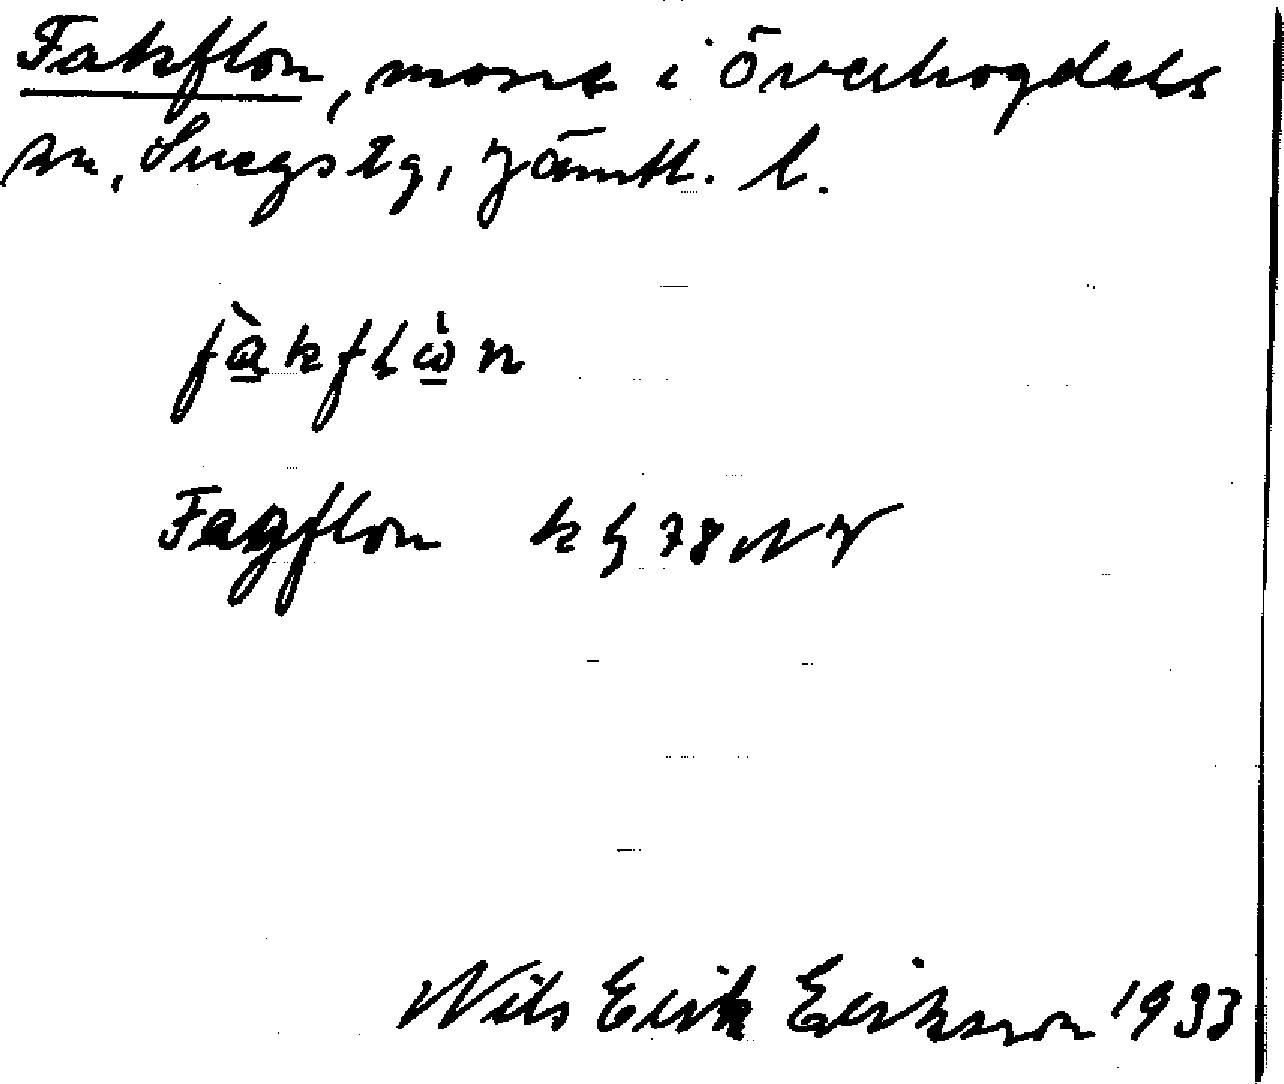 Fakflon, mosse i Överhogdals
sn, Svegs tg, Jämtl. l.
fàkflòn
Fagflon kf 78 NV
Nils Erik Erikson 1933